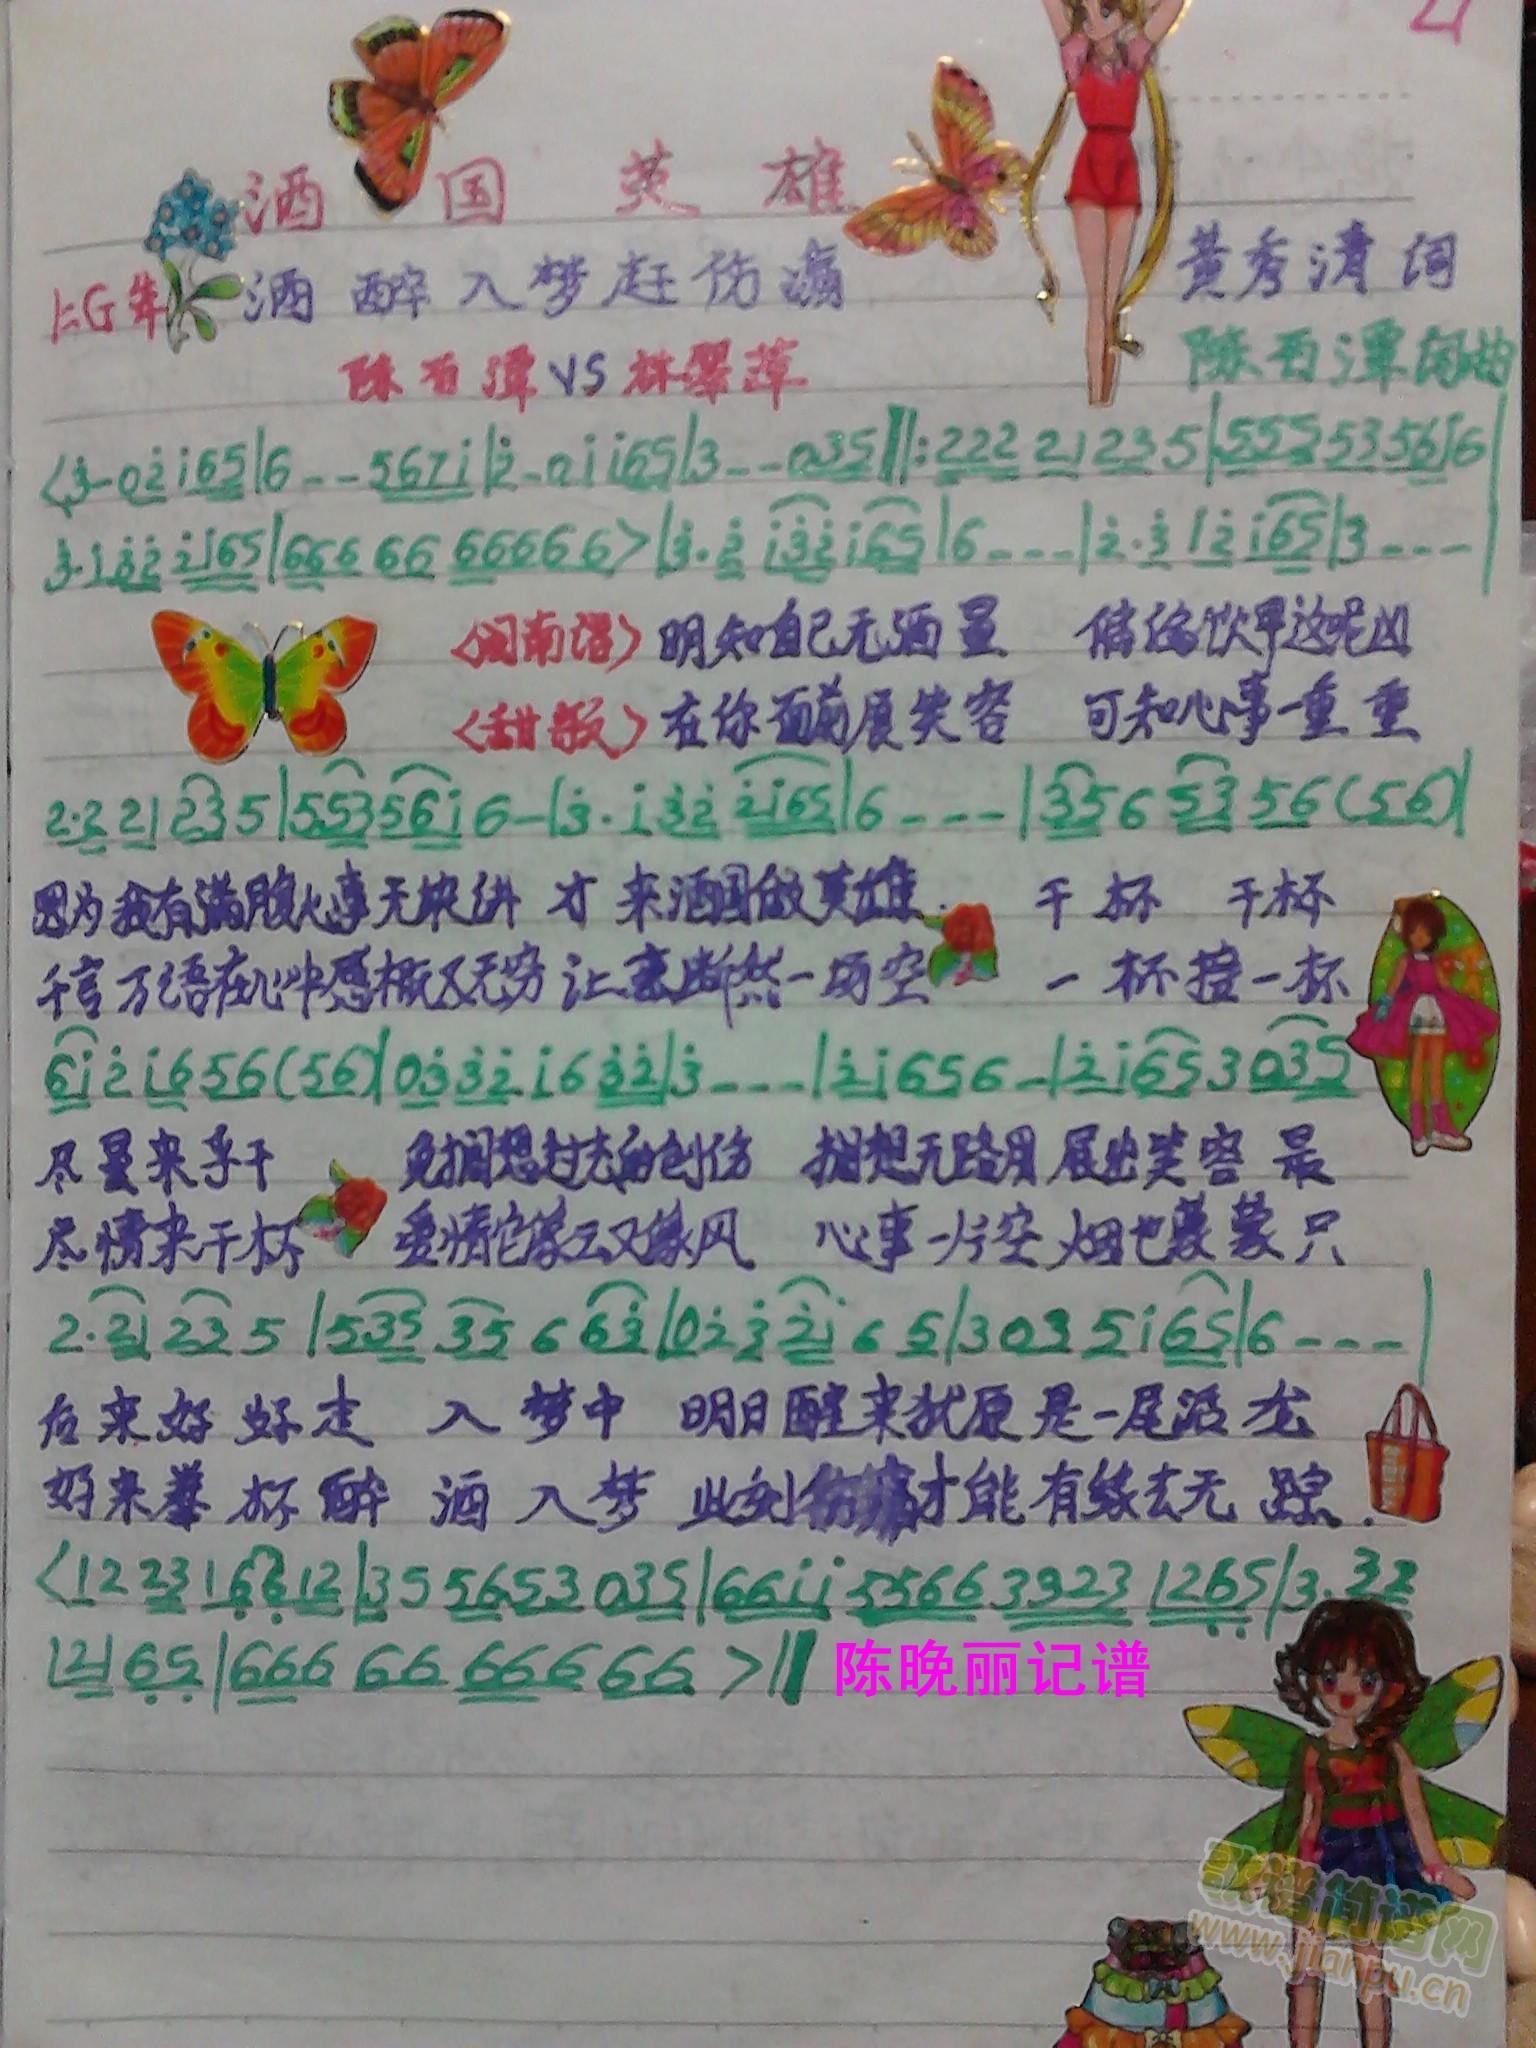 21
酒国英雄
酒醉入梦赶伤痛
黄秀清词
1=G 4/4
陈百潭VS林翠萍
陈百潭闽曲
<3-02165|6--5671|2-01165|3--035‖:22221235|555535616
3·132 2165|66666 66666>|3·2132165|6---|2·312165|3---
<闽南语>明知自己无酒量 偏偏饮甲这呢凶
<甜歌>在你面前展笑容 可知心事一重重
2·221235|5535616-|3·1322165|6---|3565356(56)|
因为我有满腹心事无块讲 才来酒国做英雄 干杯 干杯
千言万语在心中感概又无穷 让 断然一场空 一杯接一杯
6121656(56)|03321632|3---|21656-|21653035
尽量来乎干 免擱想过去的创伤 擱想无路用 展出笑容 最
尽情来干杯 爱情它像云又像风 心事一片空 烟也蒙蒙 只
2·21235|53535663|0232165|3035165|6---|
后来好好走 入梦中 明日醒来犹原是一尾活龙
好来举杯醉 酒入梦 此刻伤痛才能有缘去无踪.
<122316612|355653035|6611556633231265|3·32
12165|66666 66666>‖ 陈晚丽记谱
歌谱简谱网
www.jianpu.cn